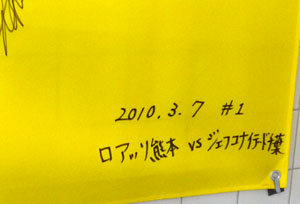 2010.3.7 #1
ロアッソ熊本 vs ジェフユナイテッド千葉